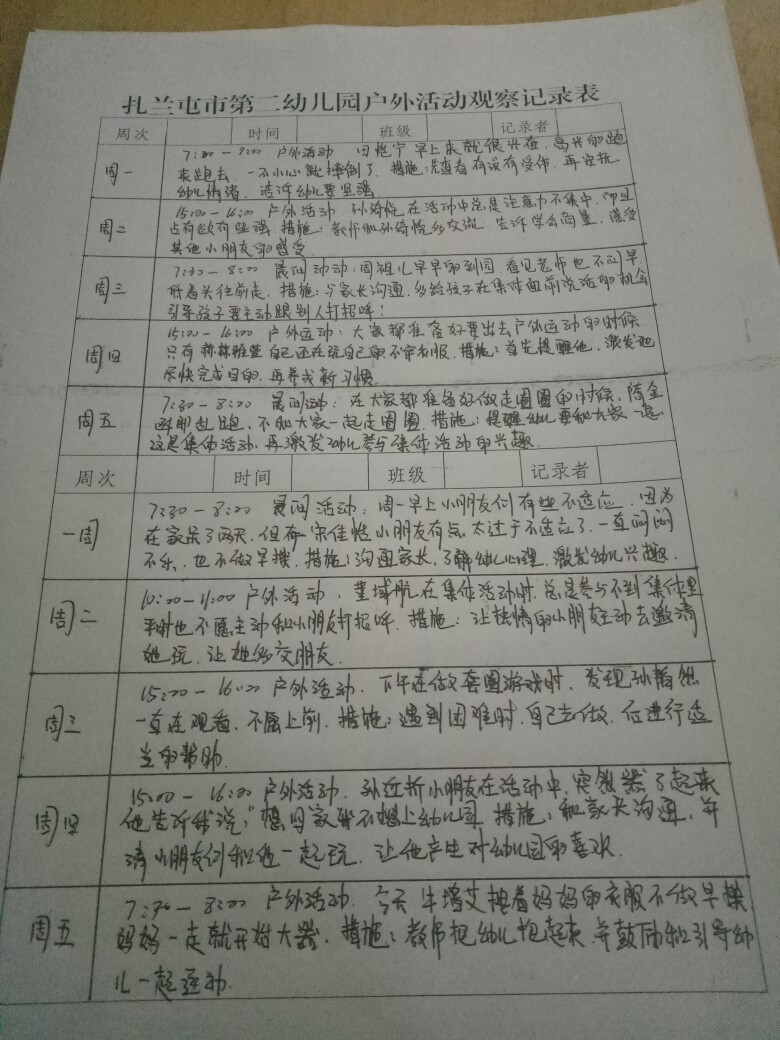 扎兰屯市第二幼儿园户外活动观察记录表
周次 时间 班级 记录者
周一
7:30—8:00 户外活动 田恺宁早上来就很兴奋,高兴的跑
来跑去,一不小心就摔倒了。措施:先查看有没有受伤,再安抚
幼儿情绪,告诉幼儿要坚强
周二
15:00—16:00 户外活动 孙绮悦在活动中总是注意力不集中,而且
占有欲有些强。措施:教师和孙绮悦多交流 告诉学会向量,感受
其他小朋友的感受
周三
7:30—8:00 晨间活动:周祖儿早早的到园,看见老师也不问早,
低着头往前走。措施:与家长沟通,多给孩子在集体面前说话的机会
引导孩子要主动跟别人打招呼!
周四
15:00—16:00 户外运动:大家都准备好要出去户外运动的时候
只有 自己还在玩自己的不穿衣服。措施:首先提醒他,激发他
尽快完成目的,再养成新习惯
周五
7:30—8:00 晨间活动:在大家都准备好做走圈圈的时候,陈金
即乱跑,不和大家一起走圈圈。措施:提醒幼儿要和大家一起
这是集体活动,再激发幼儿参与集体活动的兴趣。
周次 时间 班级 记录者
一周
7:30—8:00 晨间活动:周一早上小朋友们有些不适应,因为
在家呆了两天,但有宋佳怡小朋友有点太过于不适应了,一直闷闷
不乐,也不做早操。措施:沟通家长,了解幼儿心理,激发幼儿兴趣。
周二
10:00—11:00 户外活动,董域航在集体活动时,总是参与不到集体里
平时也不愿主动和小朋友打招呼。措施:让热情的小朋友主动去邀请
她玩,让她多交朋友。
周三
15:00—16:00 户外活动。下午在做套圈游戏时,发现孙 然
一直在观看,不愿上前。措施:遇到困难时,自己去做,在进行适
当的帮助。
周四
15:00—16:00 户外活动。孙近析小朋友在活动中,突然哭了起来
他告诉我说:"想回家我不想上幼儿园。措施:和家长沟通,并
请小朋友们和他一起玩,让他产生对幼儿园的喜欢。
周五
7:30—8:00 户外活动。今天牛增艾拽着妈妈的衣服不做早操
妈妈一走就开始大哭。措施:教师把幼儿抱起来,并鼓励和引导幼
儿一起运动。